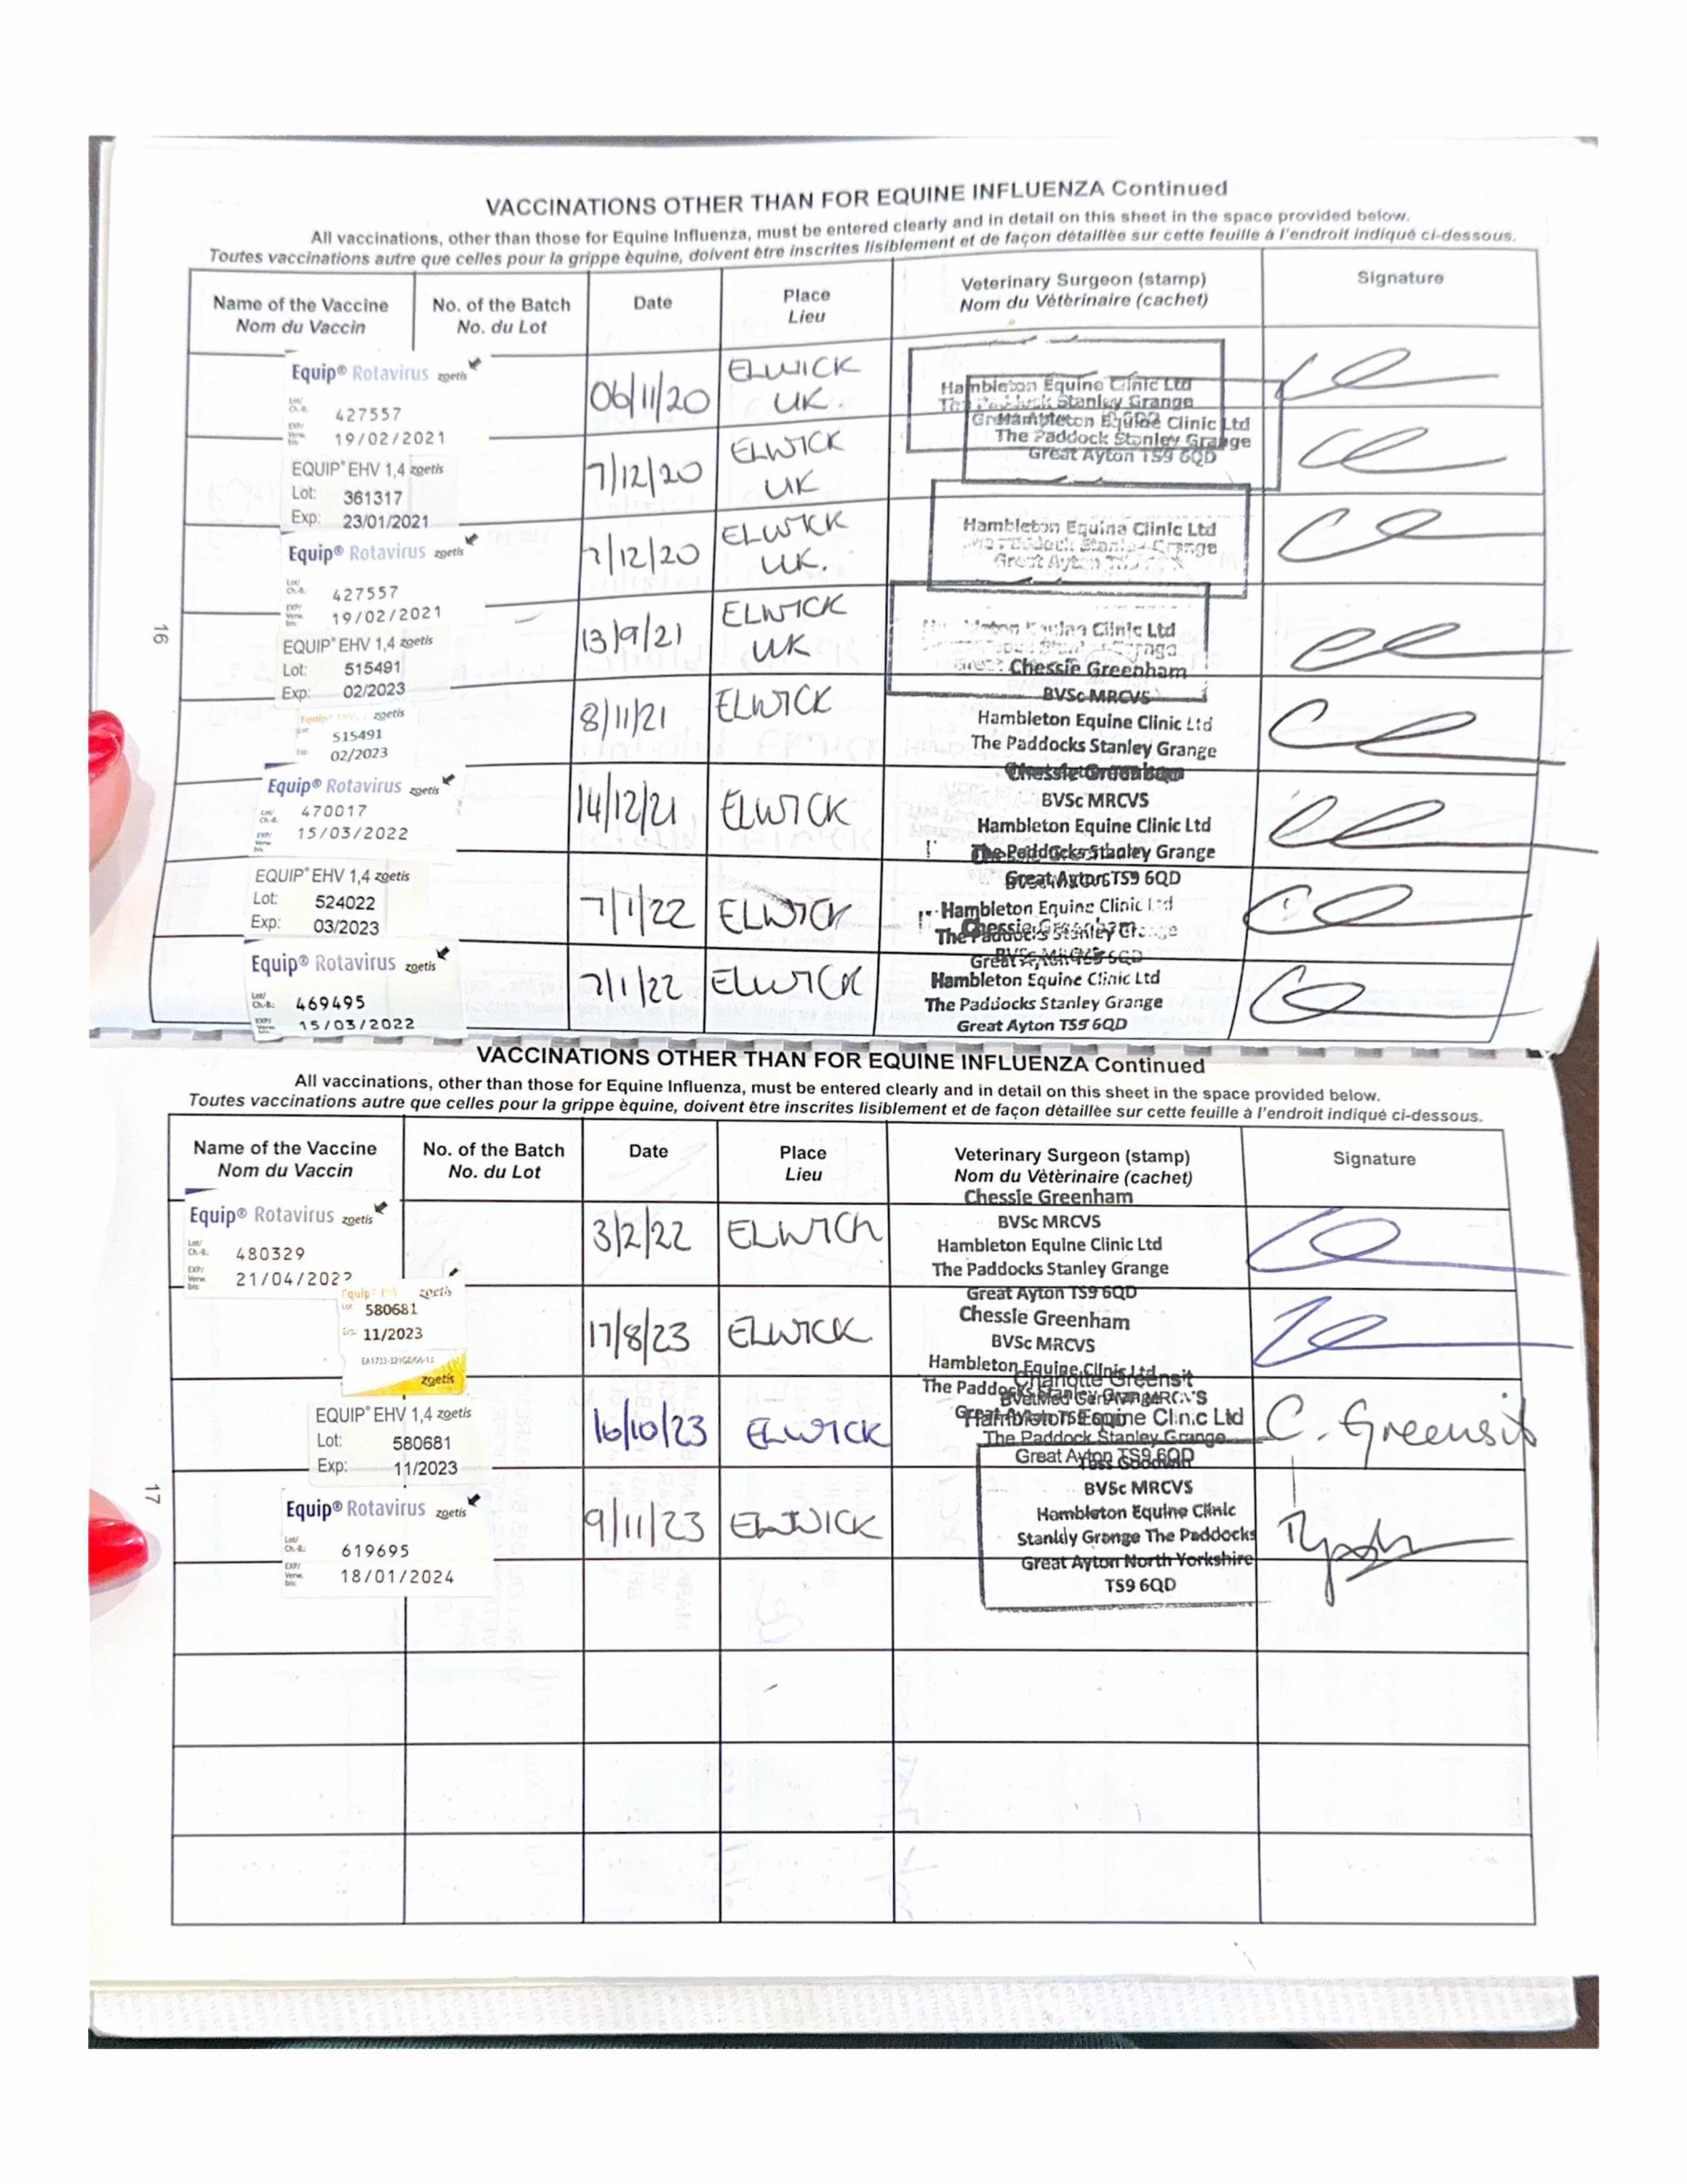 VACCINATIONS OTHER THAN FOR EQUINE INFLUENZA Continued
All vaccinations, other than those for Equine Influenza, must be entered clearly and in detail on this sheet in the space provided below.
Toutes vaccinations autre que celles pour la grippe èquine, doivent être inscrites lisiblement et de façon détaillée sur cette feuille à l'endroit indiqué ci-dessous.
Name of the Vaccine
Nom du Vaccin
No. of the Batch
No. du Lot
Date
Place
Lieu
Veterinary Surgeon (stamp)
Nom du Vétèrinaire (cachet)
Signature
Equip® Rotavirus zoetis
427557
19/02/2021
06/11/20
ELWICK
UK.
Hambleton Equine Clinic Ltd
Stanley Grange
EQUIP® EHV 1,4 zoetis
Lot: 361317
Exp: 23/01/2021
7/12/20
ELWICK
UK
Equine Clinic Ltd
The Paddock Stanley Grange
Great Ayton TS9 6QD
Equip® Rotavirus zoetis
427557
19/02/2021
7/12/20
ELWICK
UK.
Hambleton Equine Clinic Ltd
Great Ayton
EQUIP® EHV 1,4 zoetis
Lot: 515491
Exp: 02/2023
13/9/21
ELWICK
UK
Clinic Ltd
zoetis
515491
02/2023
8/11/21
ELWICK
Chessie Greenham
BVSc MRCVS
Hambleton Equine Clinic Ltd
The Paddocks Stanley Grange
Equip® Rotavirus zoetis
470017
15/03/2022
14/12/21
ELWICK
Chessie Greenham
BVSc MRCVS
Hambleton Equine Clinic Ltd
The Paddocks Stanley Grange
Great Ayton TS9 6QD
EQUIP® EHV 1,4 zoetis
Lot: 524022
Exp: 03/2023
7/1/22
ELWICK
Hambleton Equine Clinic Ltd
The Paddocks Stanley
Equip® Rotavirus zoetis
469495
15/03/2022
7/1/22
ELWICK
Chessie Greenham
Hambleton Equine Clinic Ltd
The Paddocks Stanley Grange
Great Ayton TS9 6QD
16
VACCINATIONS OTHER THAN FOR EQUINE INFLUENZA Continued
All vaccinations, other than those for Equine Influenza, must be entered clearly and in detail on this sheet in the space provided below.
Toutes vaccinations autre que celles pour la grippe èquine, doivent être inscrites lisiblement et de façon dètaillèe sur cette feuille à l'endroit indiqué ci-dessous.
Name of the Vaccine
Nom du Vaccin
No. of the Batch
No. du Lot
Date
Place
Lieu
Veterinary Surgeon (stamp)
Nom du Vètèrinaire (cachet)
Signature
Equip® Rotavirus zoetis
480329
21/04/2022
3/2/22
ELWICK
Chessie Greenham
BVSc MRCVS
Hambleton Equine Clinic Ltd
The Paddocks Stanley Grange
Great Ayton TS9 6QD
zoetis
580681
11/2023
zoetis
17/8/23
ELWICK
Chessie Greenham
BVSc MRCVS
Hambleton Equine Clinic Ltd
The Paddocks Stanley Grange
EQUIP® EHV 1,4 zoetis
Lot: 580681
Exp: 11/2023
16/10/23
ELWICK
Charlotte Greensit
Hambleton Equine Clinic Ltd
The Paddock Stanley Grange
Great Ayton TS9 6QD
C. Greensit
Equip® Rotavirus zoetis
619695
18/01/2024
9/11/23
ELWICK
BVSc MRCVS
Hambleton Equine Clinic
Stanley Grange The Paddocks
Great Ayton North Yorkshire
TS9 6QD
17